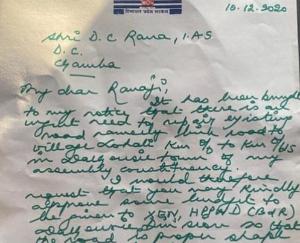 10.12.2020
Shri D.C Rana, I.AS
D.C.
Chamba
My dear Ranaji,
It has been brought
to my notice that there is an
urgent need to repair existing
road namely link road to
village Lohali Km 0/ to Km 0/
in Dalhousie town of my
assembly constituency.
I would therefore
request that you may kindly
approve some budget to
be given to XEN, HPPWD (B&R)
Dalhousie so that
the road is proper shape